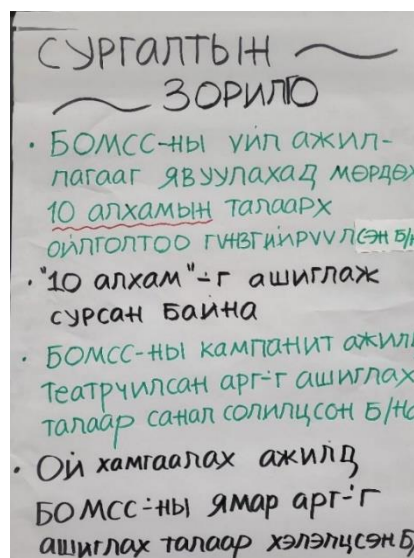 СУРГАЛТЫН
ЗОРИЛГО
• БОМСС-НЫ ҮЙЛ АЖИЛ-
ЛАГААГ ЯВУУЛАХАД МӨРДӨХ
10 АЛХАМЫН ТАЛААРХ
ОЙЛГОЛТОО ГҮНЗГИЙРҮҮЛСЭН Б/Н
• "10 АЛХАМ"-Г АШИГЛАЖ
СУРСАН БАЙНА
• БОМСС-НЫ КАМПАНИТ АЖИЛ
ТЕАТРЧИЛСАН АРГ-Г АШИГЛАХ
ТАЛААР САНАЛ СОЛИЛЦСОН Б/НА
• ОЙ ХАМГААЛАХ АЖИЛД
БОМСС-НЫ ЯМАР АРГ-Г
АШИГЛАХ ТАЛААР ХЭЛЭЛЦСЭН Б